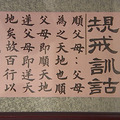 規戒訓詁
順父母：父母
為之天地也順
父母即順天地
逆父母即逆天
地矣故百行以